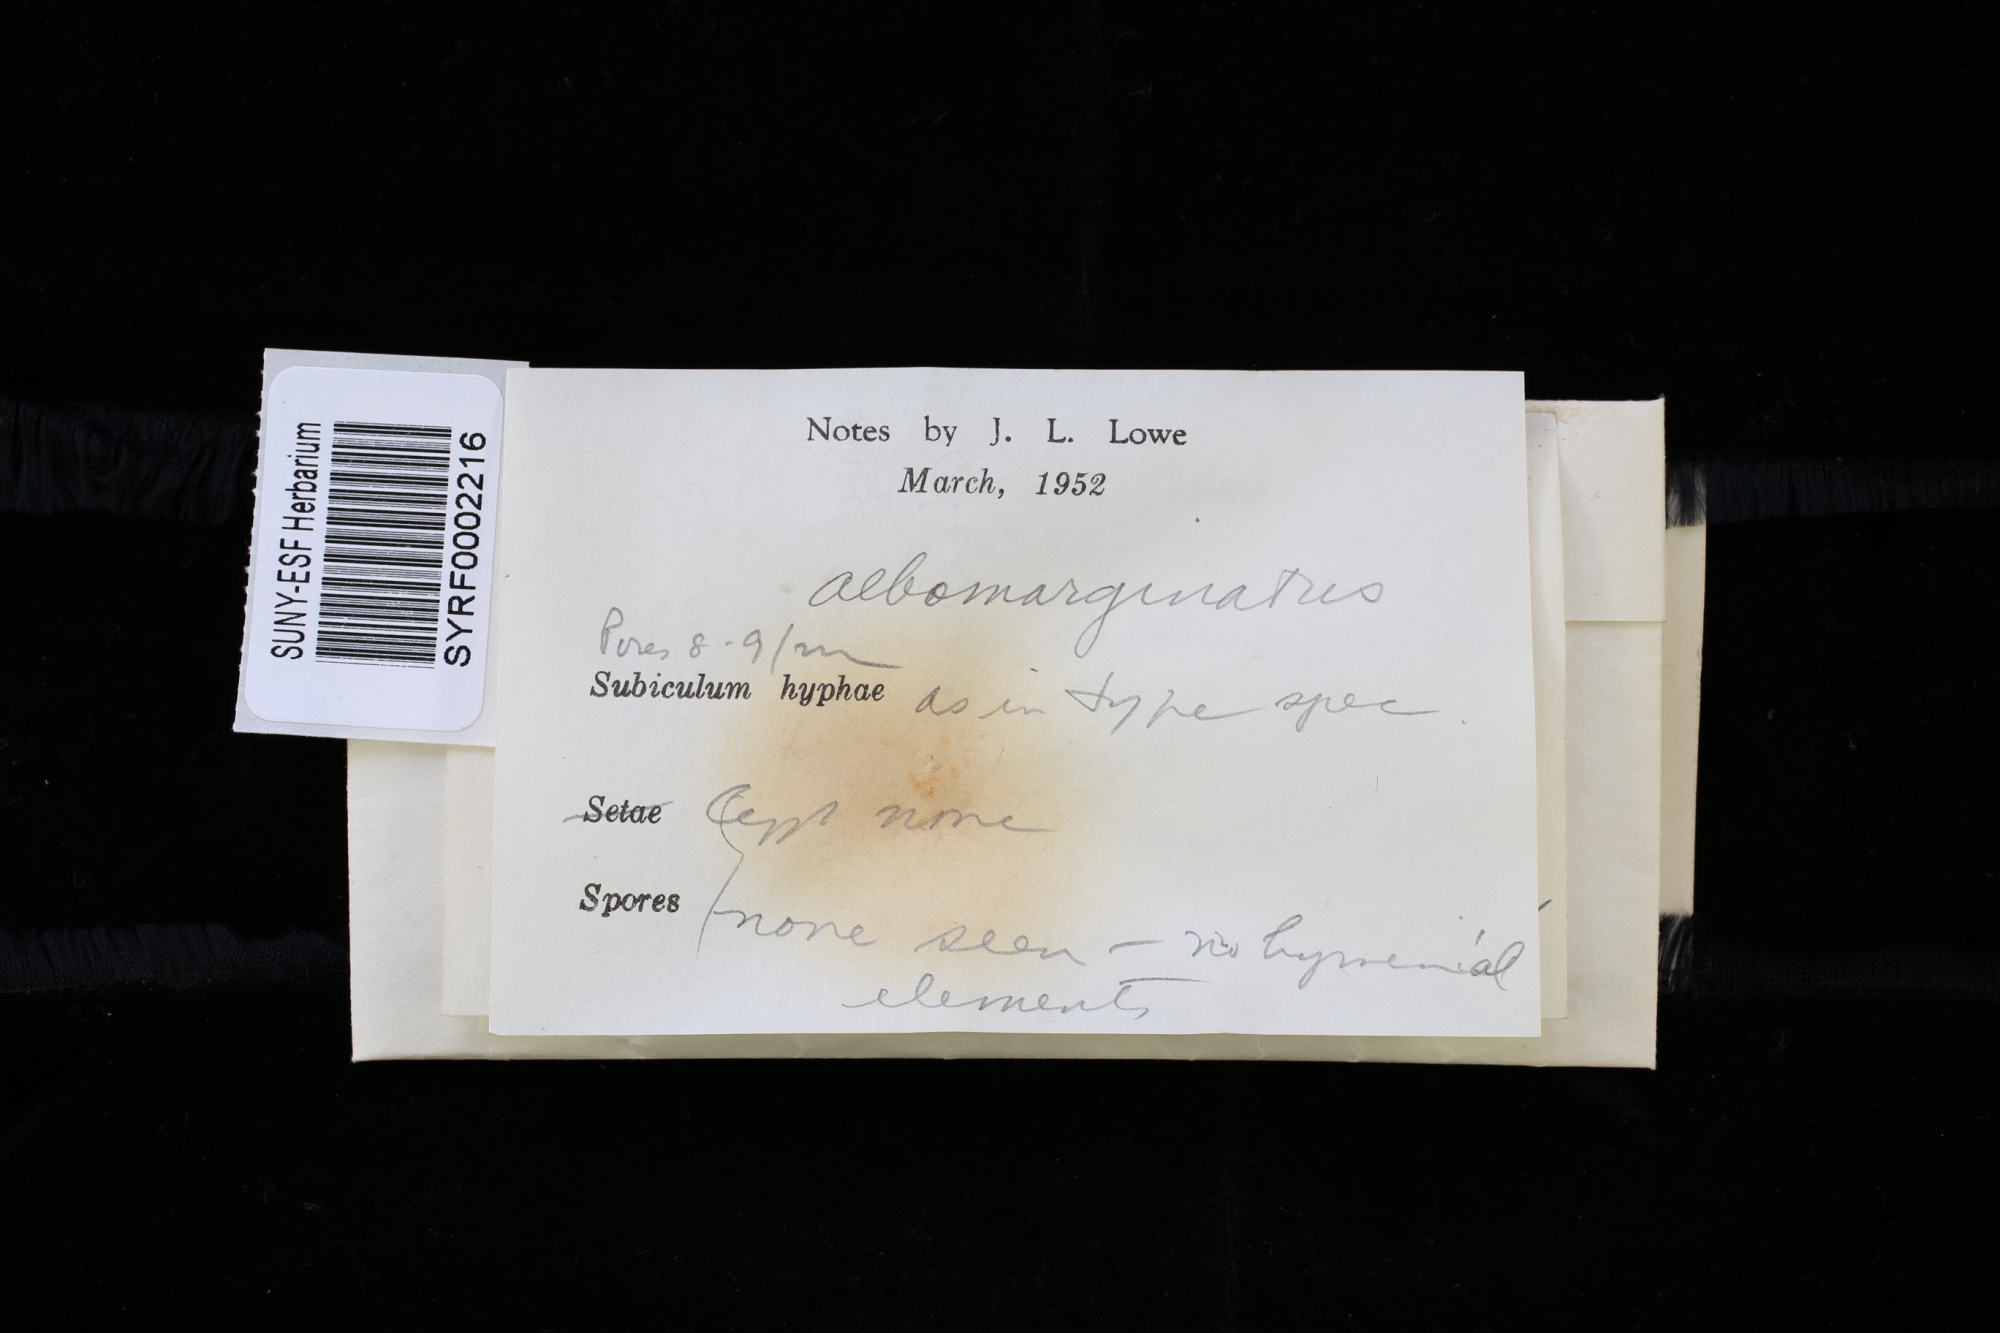 SUNY-ESF Herbarium
SYRF0002216
Notes by J. L. Lowe
March, 1952
albomarginatus
Pores 8-9/m
Subiculum hyphae as in type spec.
Setae none
Spores none seen - no hymenial
elements